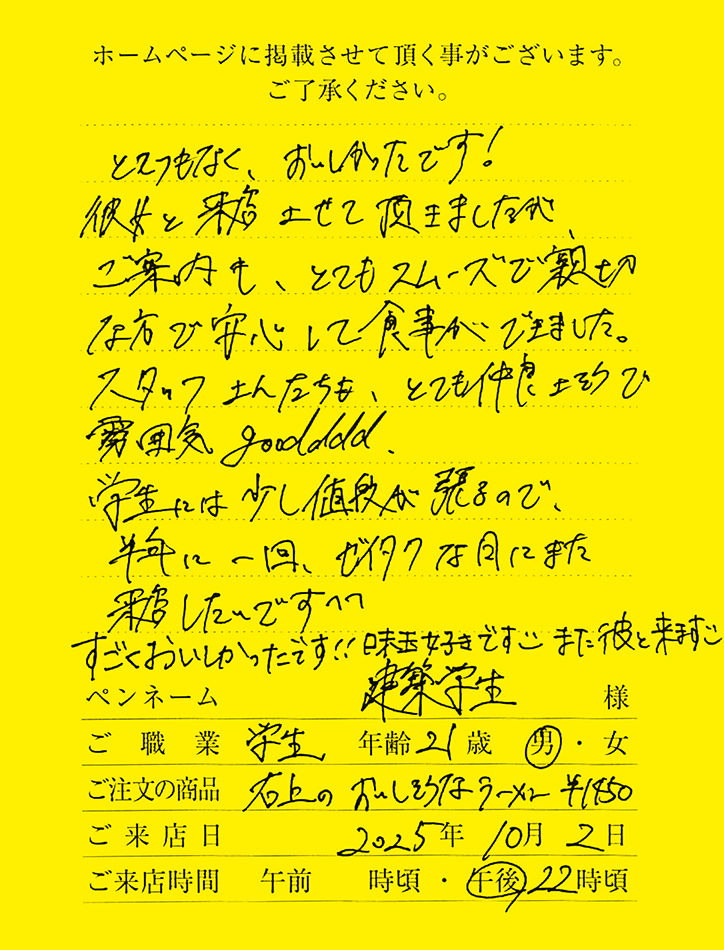 ホームページに掲載させて頂く事がございます。
ご了承ください。
とてつもなく、おいしかったです!
彼女と来店させて頂きましたが、
ご案内も、とてもスムーズで親切
な方で安心して食事ができました。
スタッフさんたちも、とても仲良さそうで
雰囲気 goodddd.
学生には少し値段が張るので、
半年に一回、ゼイタクな日にまた
来店したいです^^
すごくおいしかったです!! 味玉好きです また彼と来ます
ペンネーム 建築学生 様
ご職業 学生 年齢 21 歳 男・女
ご注文の商品 右上の おいしそうなラーメン ¥1850
ご来店日 2025年 10月 2日
ご来店時間 午前 時頃・午後 22時頃